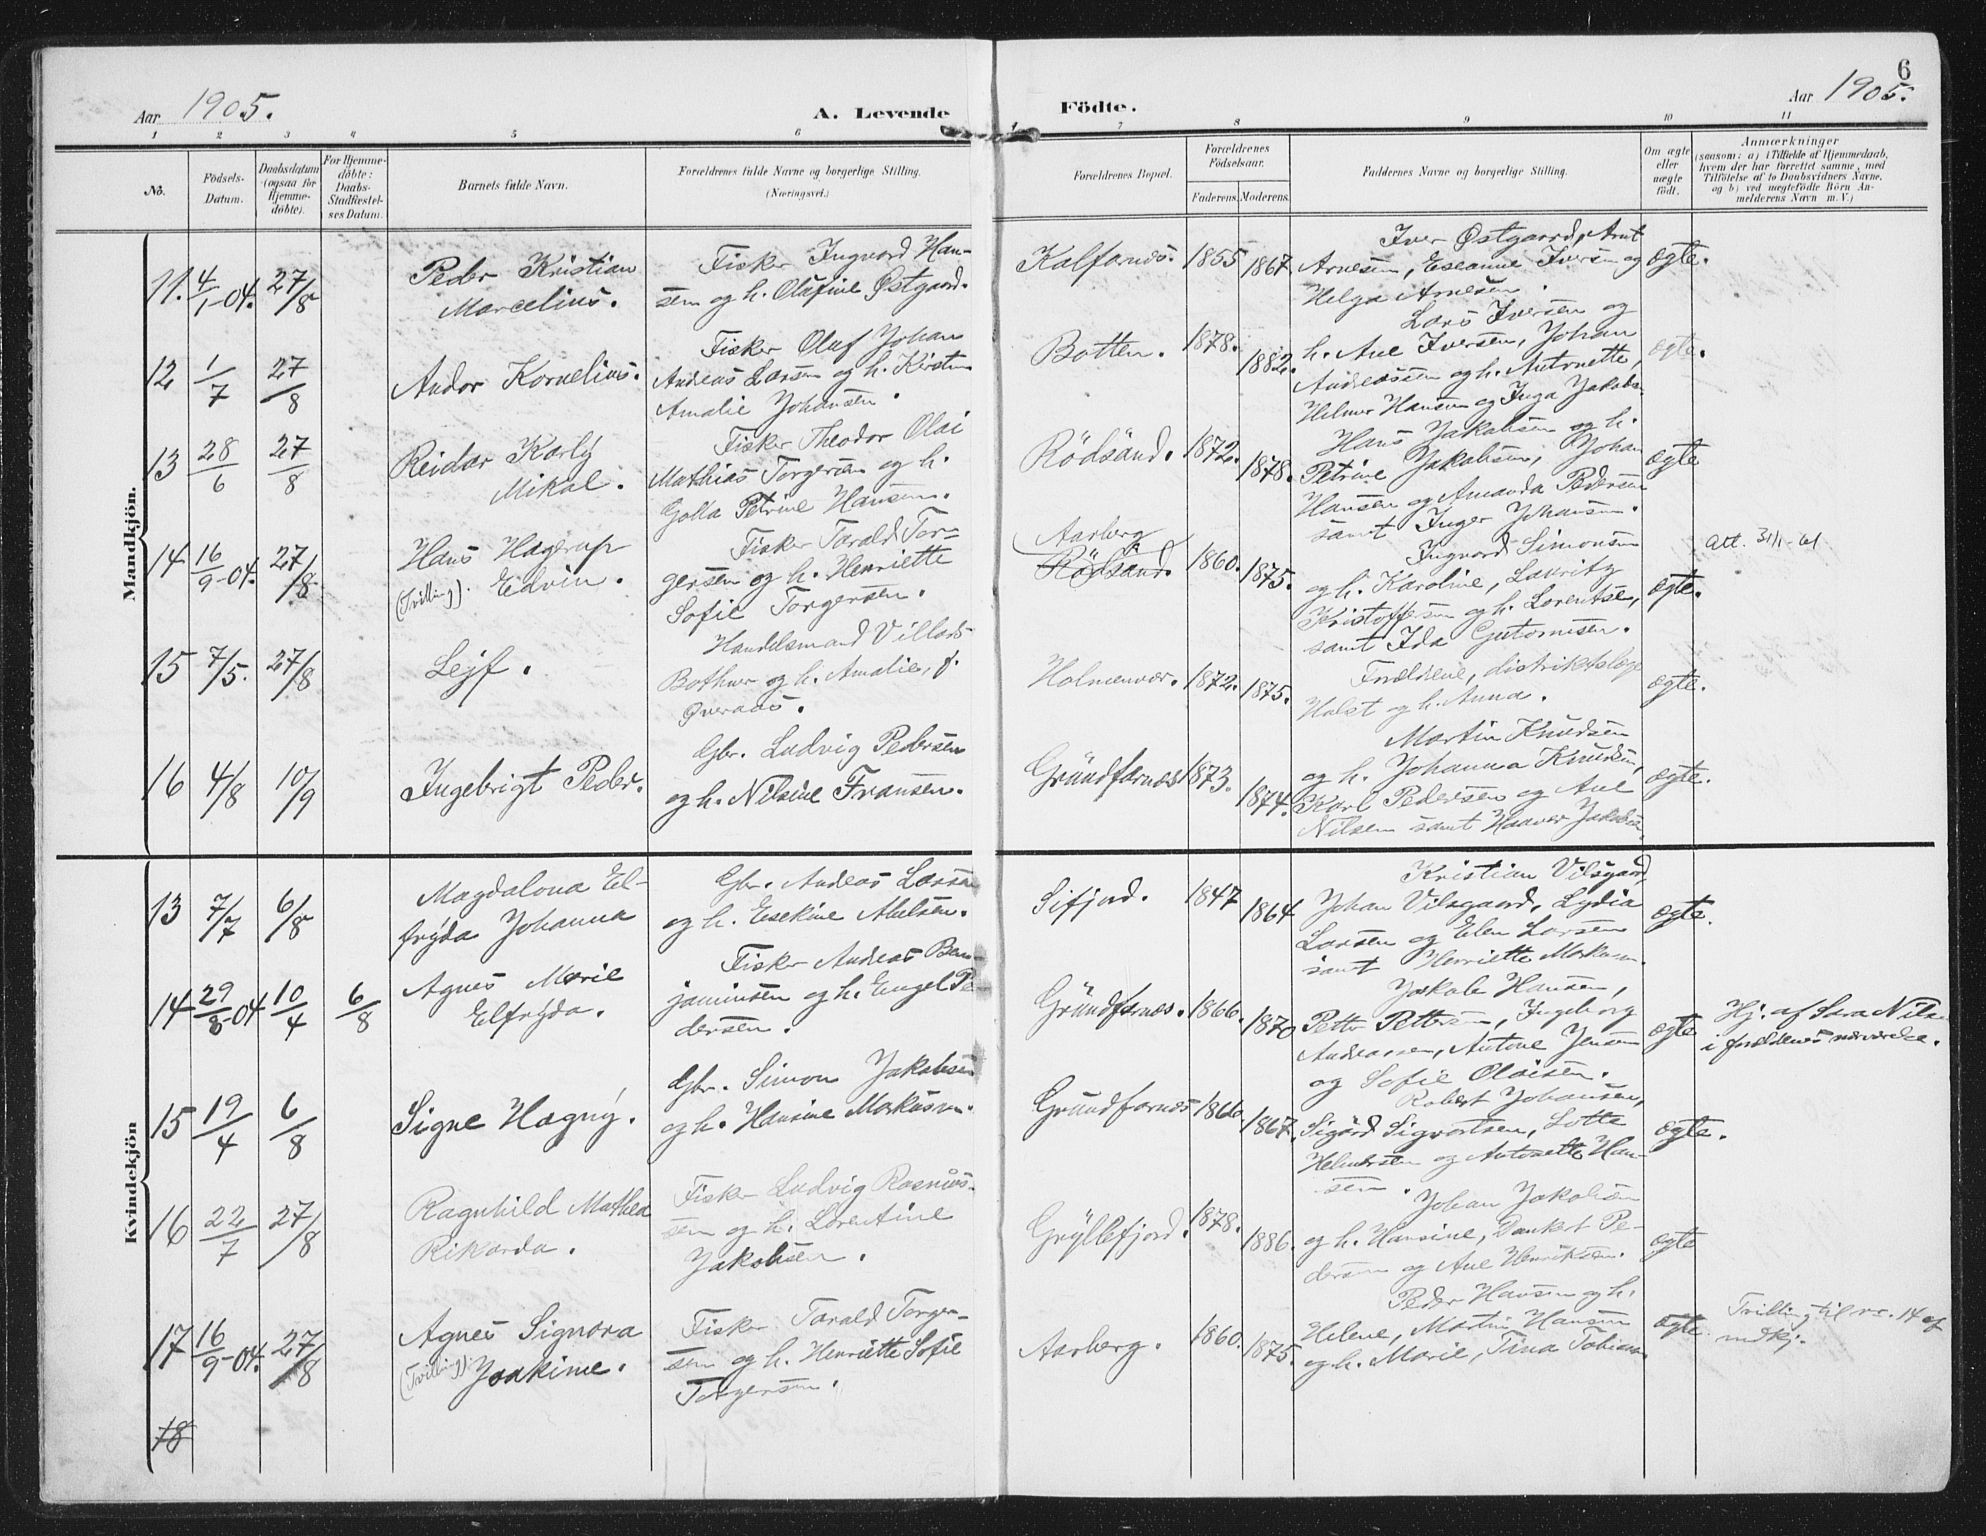 6
Aar 1905.
A. Levende
Födte.
Aar 1905.
1 2 3 4 5 6 7 8 9 10 11
No.
Födsels-
Datum.
Daabsdatum
(ogsaa for
Hjemme-
döbte).
For Hjemme-
döbte:
Daabs-
Stadfæstel-
ses Datum.
Barnets fulde Navn.
Forældrenes fulde Navne og borgerlige Stilling.
(Næringsvei.)
Forældrenes Bopæl.
Forældrenes
Födselsaar.
Faderens. Moderens.
Faddernes Navne og borgerlige Stilling.
Om ægte
eller
uægte
födt.
Anmærkninger
(saasom: a) i Tilfælde af Hjemmedaab,
hvem der har forrettet samme, med
Tilföielse af to Daabsvidners Navne,
og b) ved uægtefödte Börn An-
melderens Navn m. V.)
Mandkjön.
11. 4/1-04. 27/8
Peder Kristian
Marcelius.
Fisker Ingvard Han-
sen og h. Olafine Østgaard.
Kalfarnes. 1855 1867.
Iver Østgaard, Arnt
Arnesen, Eseanne Iversen og
Helga Arnesen.
ægte.
12 1/7 27/8
Andor Kornelius.
Fisker Oluf Johan
Andreas Larsen og h. Kirstine
Amalie Johansen.
Botten. 1878. 1882.
Lars Iversen og
h. Ane Iversen, Johan
Andreassen og h. Antonette,
Helmer Hansen og Inga Jakobs.
ægte.
13 28/6 27/8
Reidar Karly
Mikal.
Fisker Theodor Olai
Mathias Torgersen og h.
Golla Petrine Hansen.
Rödsand. 1872. 1878.
Hans Jakobsen og h.
Petrine Jakobsen, Johan
Hansen og Amanda Pedersen
samt Inger Johansen.
ægte
14 16/9-04. 27/8
Hans Hagerup
(Tvilling). Edvin.
Fisker Tarald Tor-
gersen og h. Henriette
Sofie Torgersen.
Aarberg
Rödsand. 1860. 1875.
Ingvard Simonsen
og h. Karoline, Lauritz
Kristoffersen og h. Lorentse,
samt Ida Gutormsen.
ægte.
Att. 31/1-61
15 7/5. 27/8
Lejf.
Handelsmand Villads
Bothner og h. Amalie, f.
Øveraas.
Holmenvær. 1872. 1875.
Forældrene, distriktslæge
Holst og h. Anna.
ægte.
16 4/8 10/9
Ingebrigt Peder.
Gbr. Ludvig Pedersen
og h. Nilsine Fransen.
Grundfarnes 1873. 1874.
Martin Knudsen
og h. Johanna Knudsen,
Karl Pedersen og Ane
Nilsen samt Haaver Jakobs.
ægte.
Kvindekjön
13 7/7 6/8
Magdalona El-
fryda Johanna
Gbr. Andreas Larsen
og h. Esekine Abelsen.
Sifjord. 1847 1864
Kristian Vilsgaard,
Johan Vilsgaard, Lydia
Larsen og Elen Larsen
samt Henriette Markusen.
ægte.
14 29/8-04 10/4 6/8
Agnes Marie
Elfryda.
Fisker Andreas Ben-
jaminsen og h. Engel Pe-
dersen.
Grundfarnes. 1866. 1870
Jakob Hansen,
Petter Pettersen, Ingeborg
Andreassen, Antone Jensen
og Sofie Olaisen.
ægte
Hj. af Sara Nils.
i forældrenes nærværelse.
15 19/4 6/8
Signe Hagny.
Gbr. Simon Jakobsen
og h. Hansine Markusen.
Grundfarnes 1866. 1867.
Robert Johansen,
Sigurd Sigvartsen, Lotte
Helmersen og Antonette Han-
sen.
ægte.
16 22/7 27/8
Ragnhild Mathea
Rikarda.
Fisker Ludvig Rasmus-
sen og h. Lorentine
Jakobsen.
Gryllefjord. 1878. 1886.
Johan Jakobsen
og h. Hansine, Dankert Pe-
dersen og Ane Henriksen.
ægte
17 16/9-04. 27/8
Agnes Signora
(Tvilling). Joakime.
Fisker Tarald Torger-
sen og h. Henriette Sofie
Torgersen.
Aarberg. 1860. 1875.
Peder Hansen og h.
Helene, Martin Hansen
og h. Marie, Tina Tobias.
ægte
Tvilling til nr. 14 af
mdkj.
18